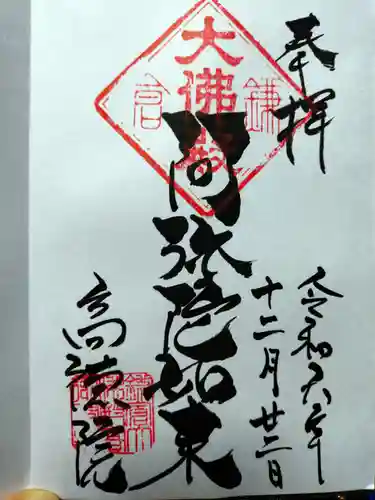 奉拝
令和六年
十二月廿二日
大佛殿
鎌倉
阿弥陀如来
高徳院